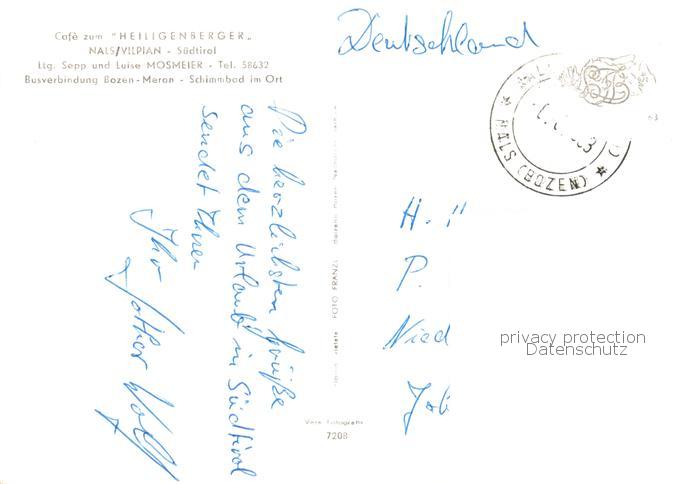 Cafè zum "HEILIGENBERGER"
NALS/VILPIAN - Südtirol
Ltg. Sepp und Luise MOSMEIER - Tel. 58632
Busverbindung Bozen-Meran - Schimmbad im Ort
Deutschland
NALS (BOZEN)
63
Die herzlichsten Grüße
aus dem Urlaub in Südtirol
sendet Ihnen
Ihr
FOTO FRANZL
Vera Fotografia
7208
H.
P.
Nied
privacy protection
Datenschutz